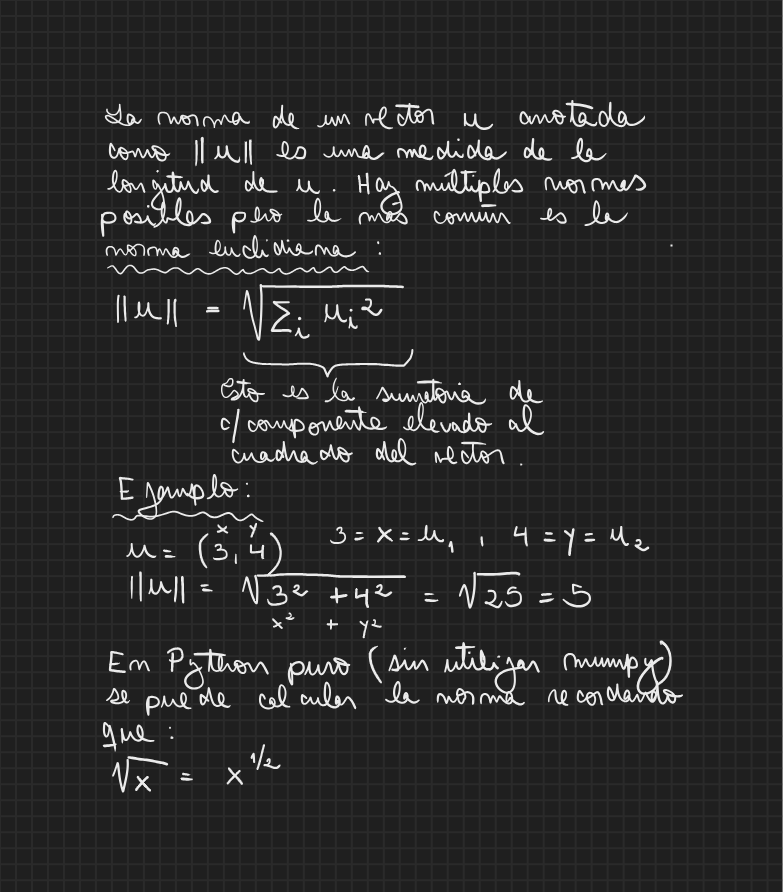 La norma de un vector u anotada
como ||u|| es una medida de la
longitud de u. Hay múltiples normas
posibles pero la más común es la
norma euclidiana :
||u|| = √Σᵢ uᵢ²
Esto es la sumatoria de
c/componente elevado al
cuadrado del vector.
Ejemplo:
x y
u = (3, 4) 3 = x = u₁ , 4 = y = u₂
||u|| = √3² + 4² = √25 = 5
x² + y²
En Python puro (sin utilizar numpy)
se puede calcular la norma recordando
que :
√x = x^1/2